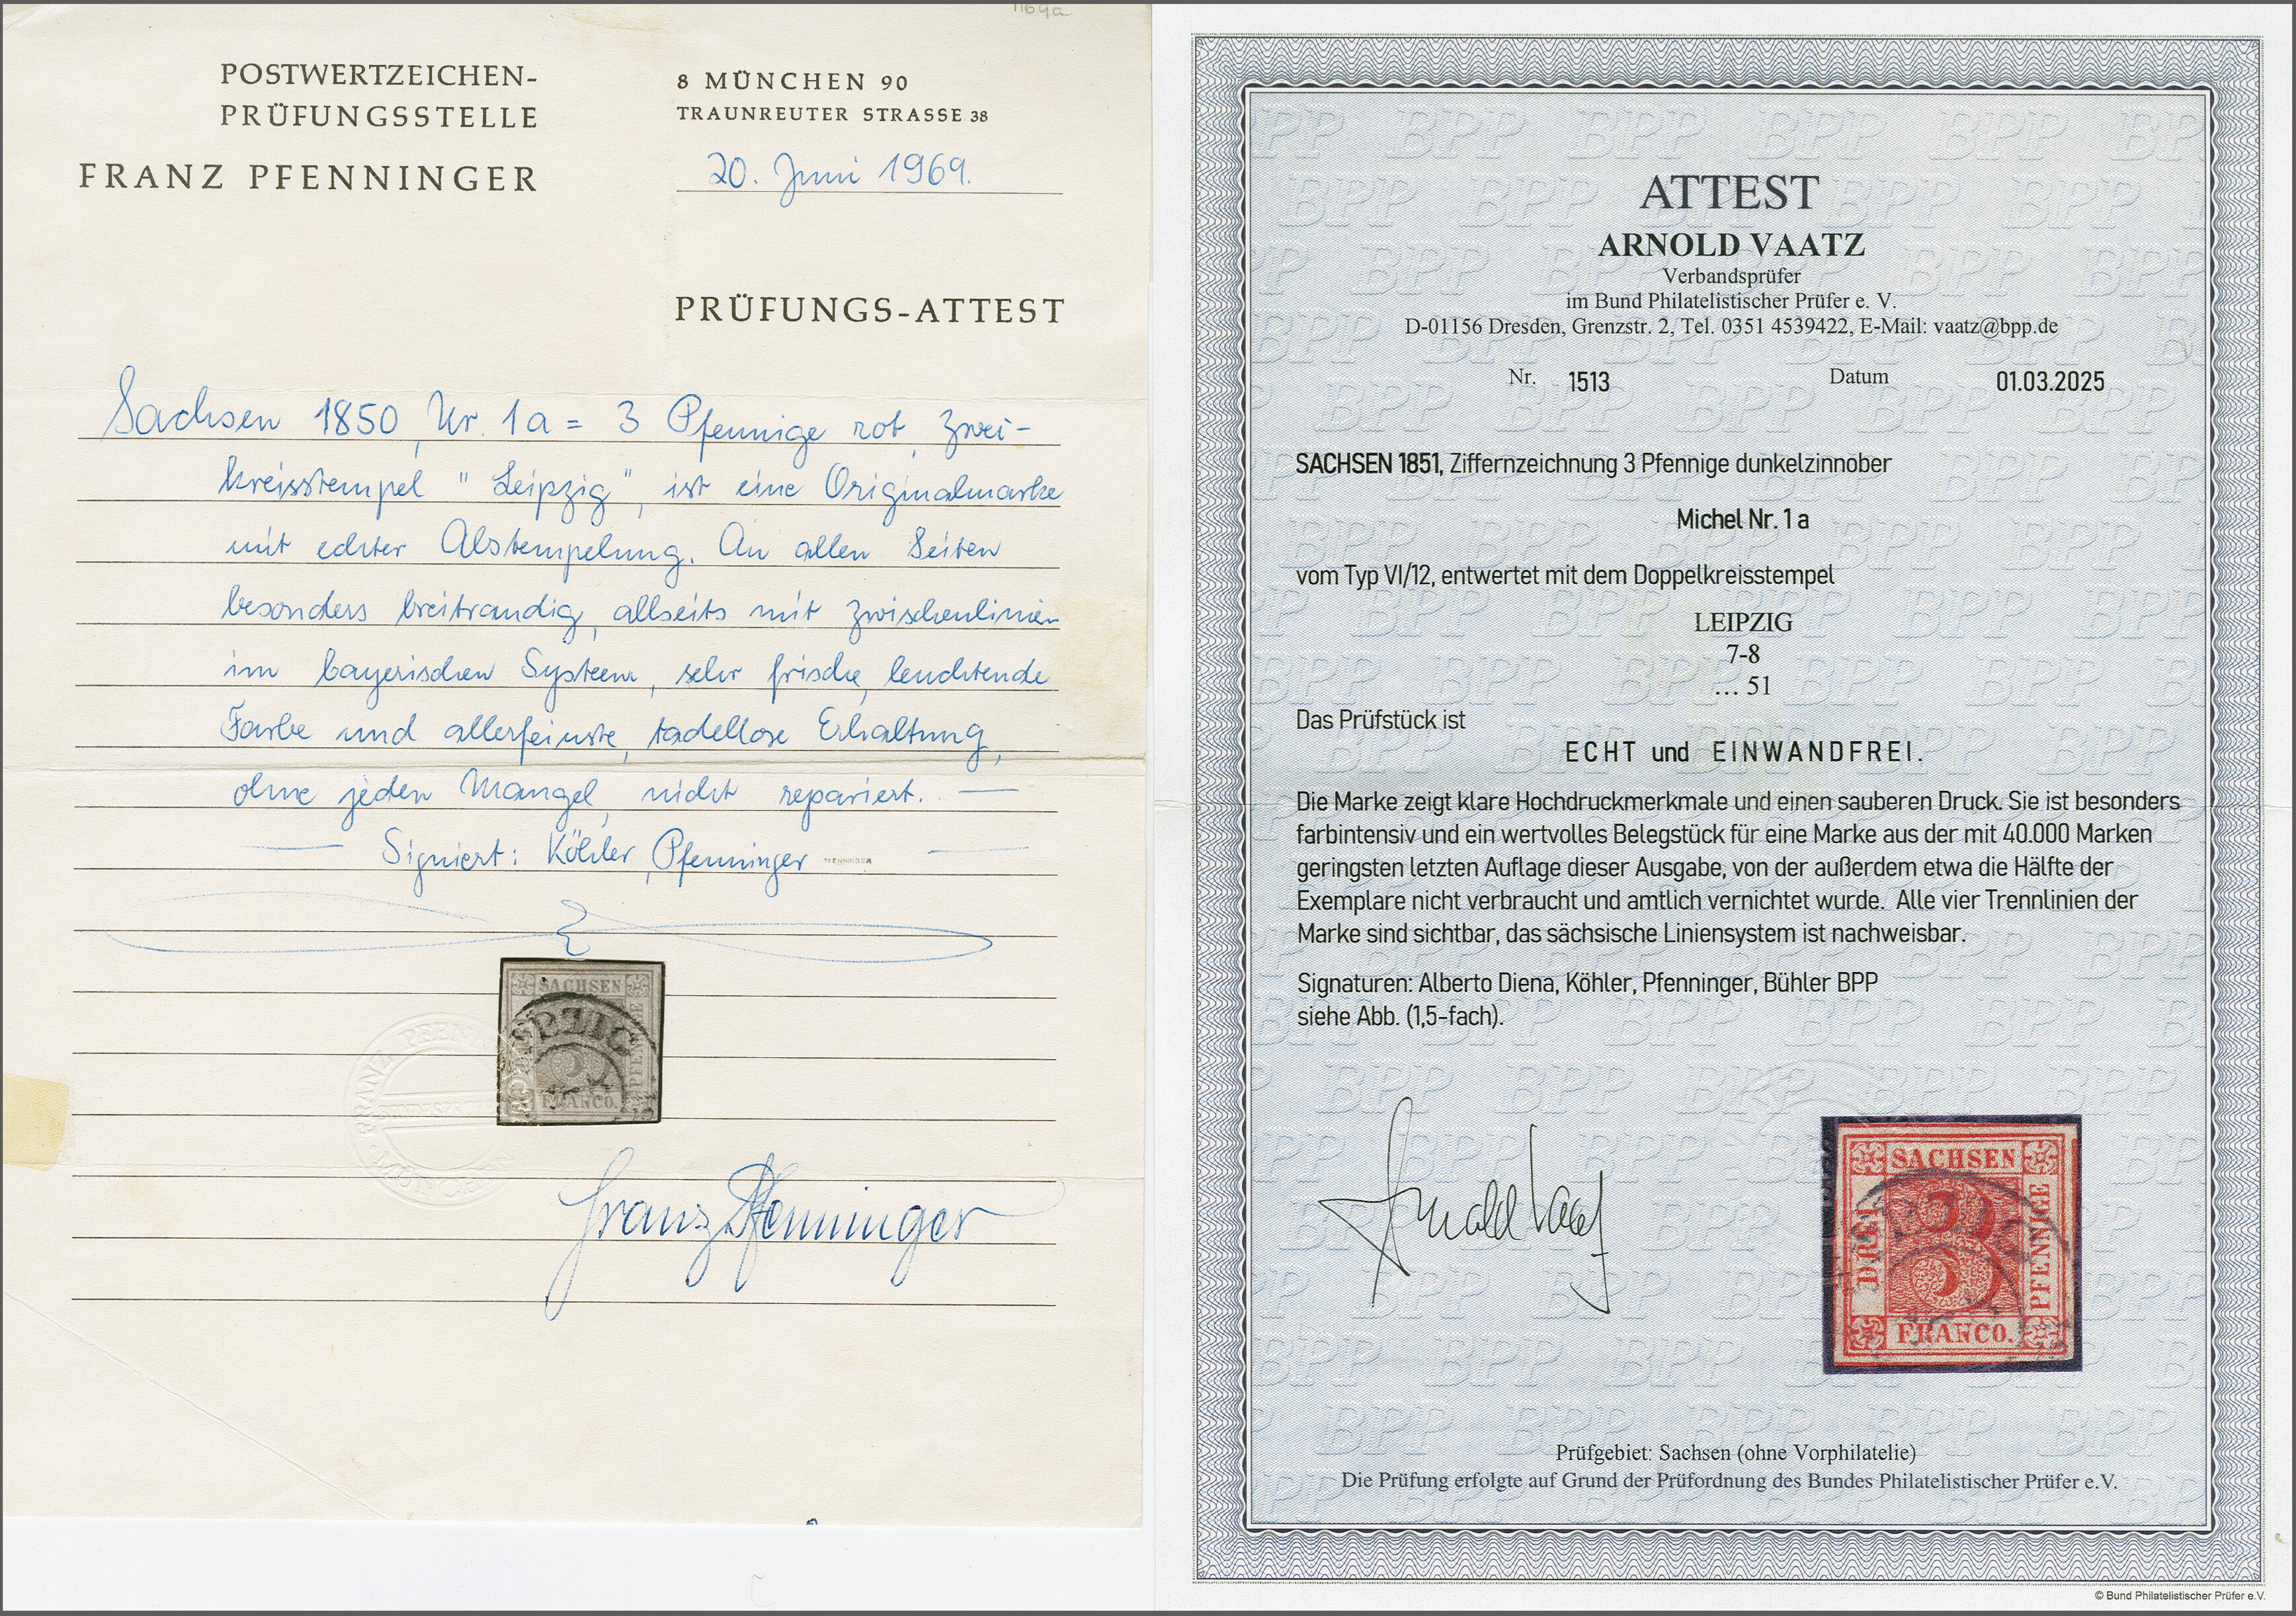 POSTWERTZEICHEN-
PRÜFUNGSSTELLE
FRANZ PFENNINGER
8 MÜNCHEN 90
TRAUNREUTER STRASSE 38
20. Juni 1969.
PRÜFUNGS-ATTEST
Sachsen 1850, Nr. 1a = 3 Pfennige rot, Zwei-
kreisstempel "Leipzig", ist eine Originalmarke
mit echter Abstempelung. An allen Seiten
besonders breitrandig, allseits mit Zwischenlinien
im bayerischen System, sehr frische, leuchtende
Farbe und allerfeinste, tadellose Erhaltung,
ohne jeden Mangel, nicht repariert. —
— Signiert: Köhler, Pfenninger PFENNINGER —
SACHSEN
PFENNIGE
FRANCO.
FRANZ PFENN
MÜNCHEN
Franz Pfenninger
ATTEST
ARNOLD VAATZ
Verbandsprüfer
im Bund Philatelistischer Prüfer e. V.
D-01156 Dresden, Grenzstr. 2, Tel. 0351 4539422, E-Mail: vaatz@bpp.de
Nr. 1513 Datum 01.03.2025
SACHSEN 1851, Ziffernzeichnung 3 Pfennige dunkelzinnober
Michel Nr. 1 a
vom Typ VI/12, entwertet mit dem Doppelkreisstempel
LEIPZIG
7-8
... 51
Das Prüfstück ist
ECHT und EINWANDFREI.
Die Marke zeigt klare Hochdruckmerkmale und einen sauberen Druck. Sie ist besonders
farbintensiv und ein wertvolles Belegstück für eine Marke aus der mit 40.000 Marken
geringsten letzten Auflage dieser Ausgabe, von der außerdem etwa die Hälfte der
Exemplare nicht verbraucht und amtlich vernichtet wurde. Alle vier Trennlinien der
Marke sind sichtbar, das sächsische Liniensystem ist nachweisbar.
Signaturen: Alberto Diena, Köhler, Pfenninger, Bühler BPP
siehe Abb. (1,5-fach).
Arnold Vaatz
SACHSEN
DREI
3
PFENNIGE
FRANCO.
Prüfgebiet: Sachsen (ohne Vorphilatelie)
Die Prüfung erfolgte auf Grund der Prüfordnung des Bundes Philatelistischer Prüfer e.V.
© Bund Philatelistischer Prüfer e.V.